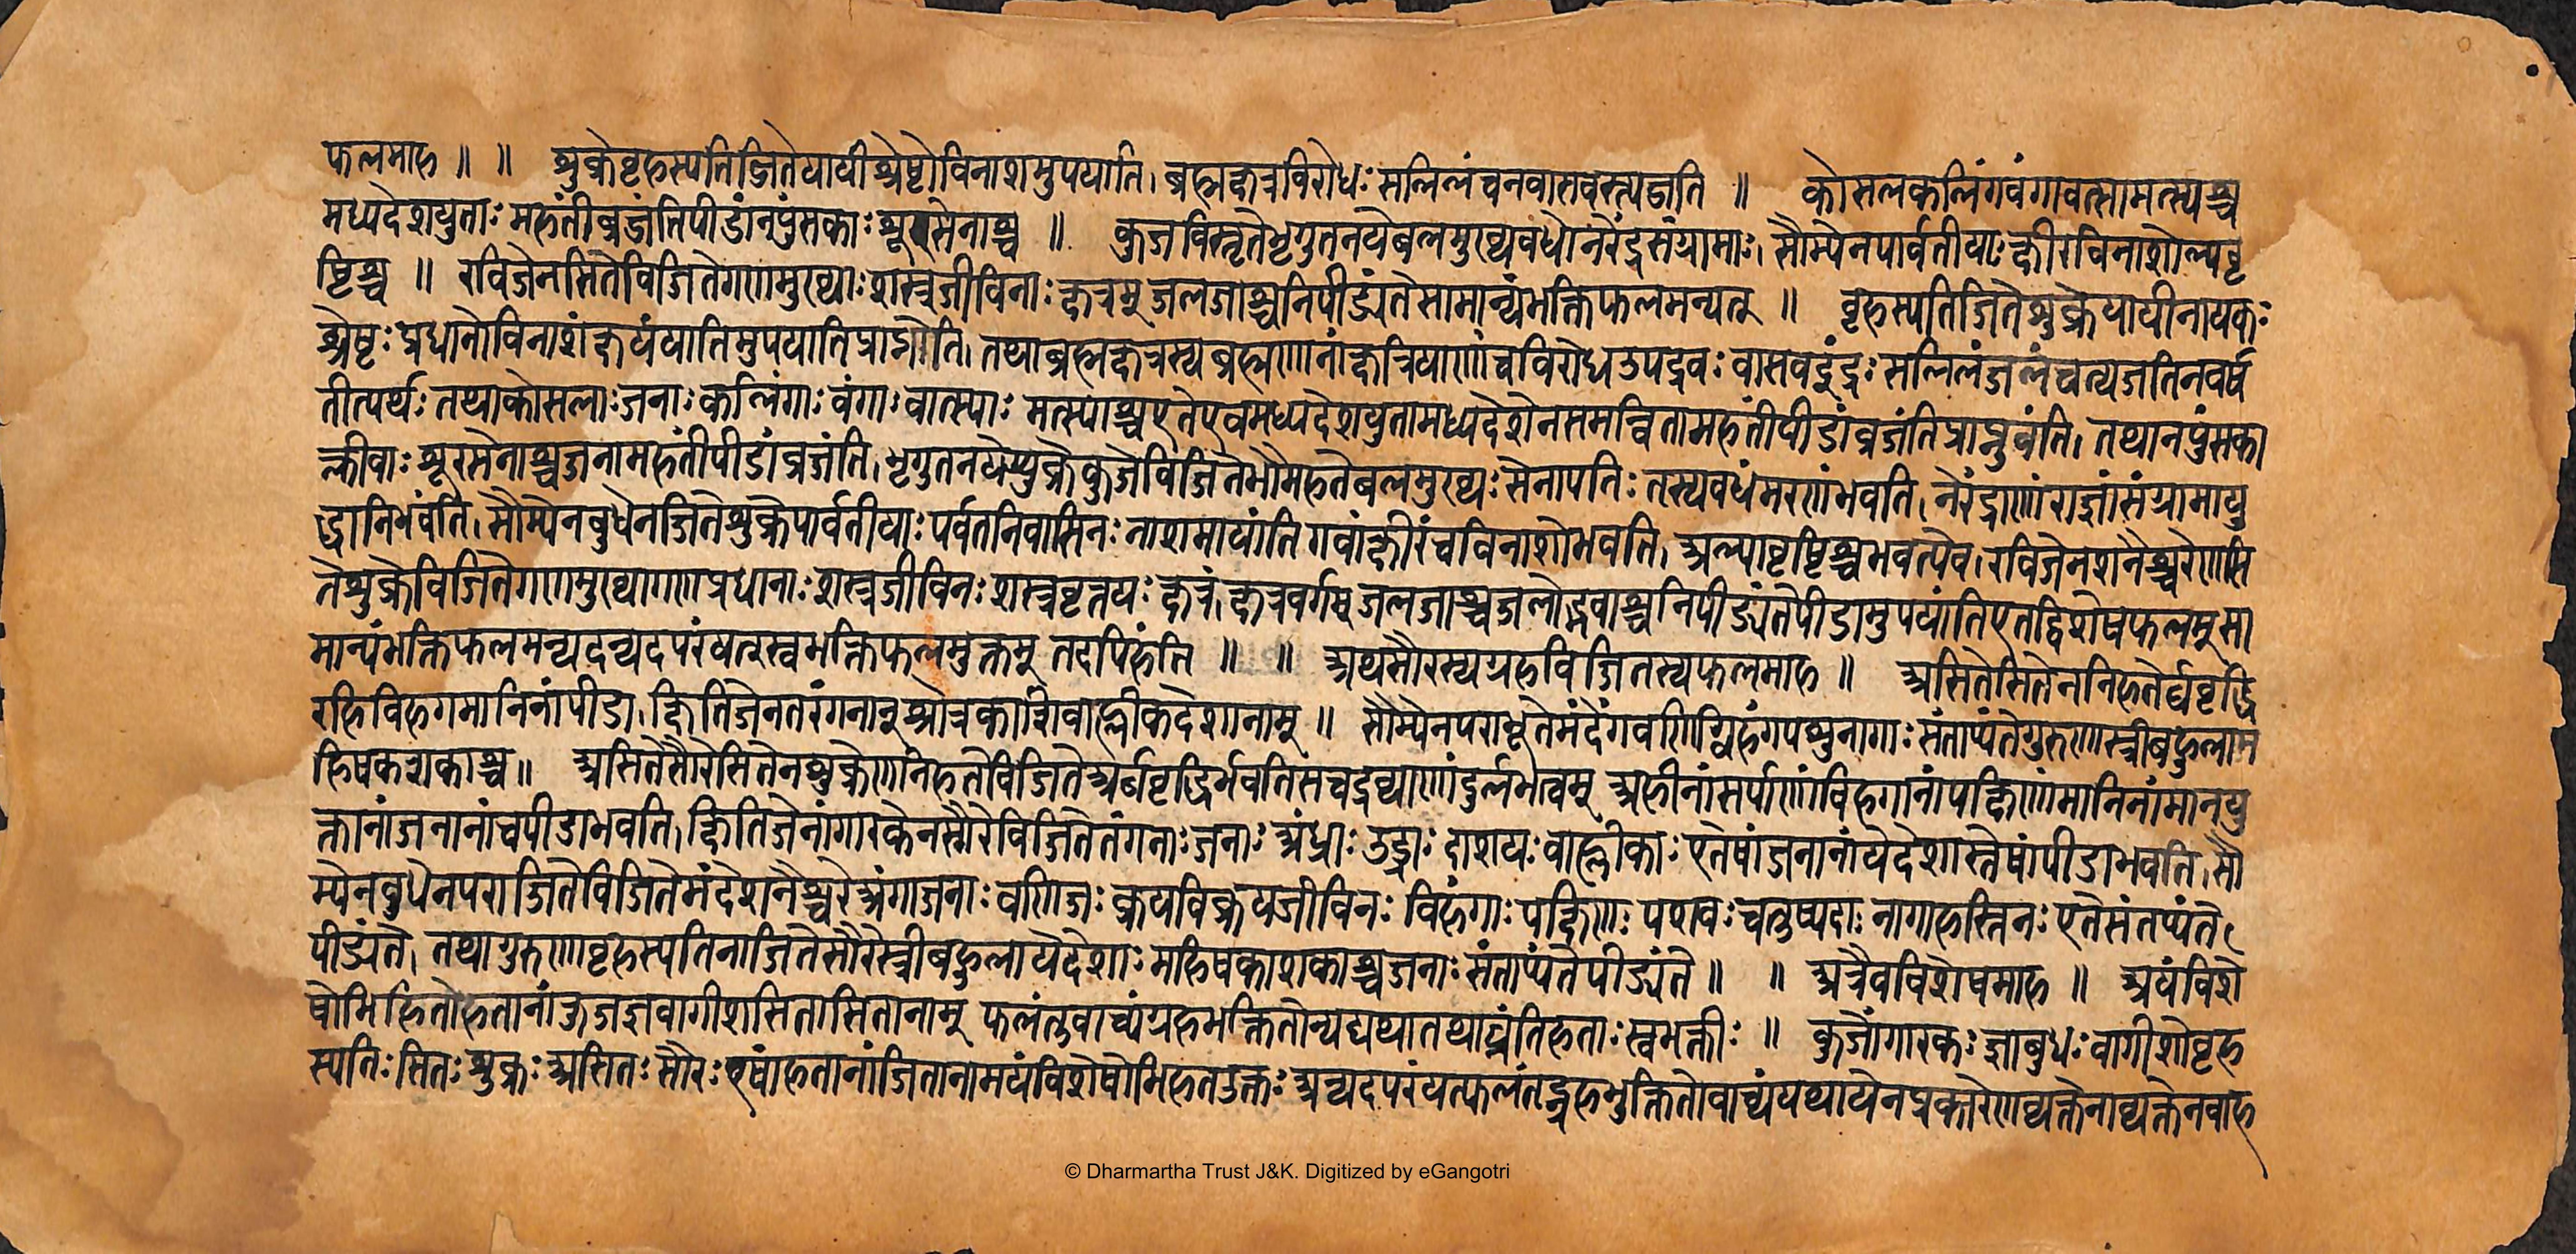 फलमाह ॥ ॥ शुक्रेवृहस्पतिजितेयायीश्रेष्टोविनाशमुपयाति। ब्रह्मक्षत्रविरोधःसलिलंचनवासवस्त्यजति ॥ कोसलकलिंगवंगावत्सामत्स्यश्च
मध्यदेशयुताः महंतींव्रजंतिपीडांनपुंसकाः शूरसेनाश्च ॥ कुजविसृतेभृगुतनयेबलमुख्यवधोनरेंद्रसंग्रामाः। सौम्येनपार्वतीयाः क्षीरविनाशोल्पवृ
ष्टिश्च ॥ रविजेनसितेविजितेगणमुख्याः शस्त्रजीविनाः क्षत्रम् जलजाश्चनिपीड्यंतेसामान्यंभक्तिफलमन्यत् ॥ वृहस्पतिजितेशुक्रेयायीनायकः
श्रेष्टः प्रधानोविनाशंक्षयंयातिमुपयातिप्राप्नोति। तथाब्रह्मक्षत्रस्यब्रह्मणानांक्षत्रियाणांचविरोधउपद्रवः वासवइंद्रः सलिलंजलंचत्यजतिनवर्ष
तीत्यर्थः तथाकोसलाःजनाः कलिंगाः वंगाः वात्स्याः मत्स्याश्चएतेएवमध्यदेशयुतामध्यदेशेनसमन्वितामहंतींपीडांव्रजंतिप्राप्नुवंति। तथानपुंसका
क्लीवाः शूरसेनाश्चजनामहंतींपीडांव्रजंति। भृगुतनयेशुक्रेकुजेविजितेभौमहतेबलमुख्यः सेनापतिः तस्यवधंमरणंभवति। नरेंद्राणांराज्ञांसंग्रामायु
द्धानिभवंति। सौम्येनबुधेनजितेशुक्रेपार्वतीयाः पर्वतनिवासिनः नाशमायांति गवांक्षीरंचविनाशोभवति। अल्पावृष्टिश्चभवत्येव। रविजेनशनैश्चरेणसि
तेशुक्रेविजितेगणमुख्यागणप्रधानाः शस्त्रजीविनः शस्त्रवृत्तयः क्षत्रं क्षत्रवर्गम् जलजाश्चजलोद्भवाश्चनिपीड्यंतेपीडामुपयांतिएतद्विशेषफलम्सा
मान्यंभक्तिफलमन्यदन्यदपरंयत्स्वभक्तिफलमुक्तम् तदपिहंति ॥ ॥ अथसौरस्यग्रहविजितस्यफलमाह ॥ असितेसितेननिहतेर्घवृद्धि
रहिविहगमानिनांपीडा। क्षितिजेनतरंगनान्ध्रओत्रकाशिवाह्लीकदेशानाम् ॥ सौम्येनपराभूतेमंदेंगवणिग्विहंगपशुनागाः संताप्यंतेगुरुणास्त्रीबहुलाम
हिषकशकाश्च॥ असितेसौरेसितेनशुक्रेणनिहतेविजितेअर्घवृद्धिर्भवतिसचद्रव्याणांदुर्लभत्वम् अहीनांसर्पाणांविहगानांपक्षिणांमानिनांमानयु
क्तानांजनानांचपीडाभवति। क्षितिजेनांगारकेनसौरेविजितेतंगनाः जनाः अंध्राः उड्राः काशयः वाह्लीकाः एतेषांजनानांयेदेशास्तेषांपीडाभवति। सौ
म्येनबुधेनपराजितेविजितेमंदेशनैश्चरेअंगाजनाः वणिजः क्रयविक्रयजीविनः विहंगाः पक्षिणः पशवः चतुष्पदाः नागाहस्तिनः एतेसंतप्यंते
पीड्यंते। तथागुरुणावृहस्पतिनाजितेसौरेस्त्रीबहुलायेदेशाः महिषकाशकाश्चजनाः संताप्यंतेपीड्यंते ॥ ॥ अत्रैवविशेषमाह ॥ अयंविशे
षोभिहितोहतानांकुजज्ञवागीशसितासितानाम् फलंतुवाच्यंग्रहभक्तितोन्यद्यथातथाघ्नंतिहताः स्वभक्तीः ॥ कुजोंगारकः ज्ञोबुधः वागीशोवृह
स्पतिः सितः शुक्रः असितः सौरः एषांहतानांजितानामयंविशेषोभिहतउक्तः अन्यदपरंयत्फलंतद्ग्रहभुक्तितोवाच्यंयथायेनप्रकारेणव्यक्तेनाव्यक्तेनवाह
© Dharmartha Trust J&K. Digitized by eGangotri